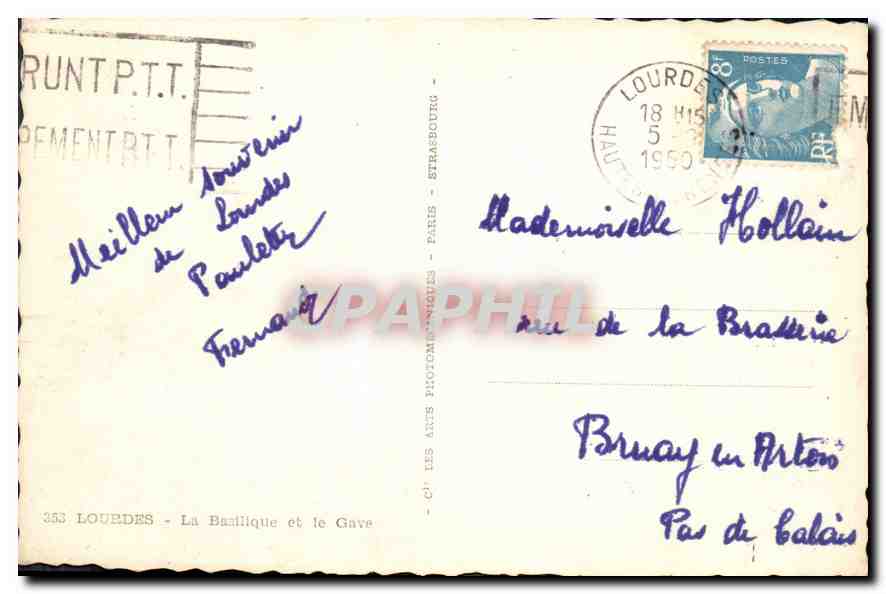 RUNT P.T.T.
PEMENT P.T.T.
LOURDES
18 H15
5
1950
HAUTES
8F
POSTES
RF
Meilleur souvenir
de Lourdes
Paulette
Fernande
Mademoiselle Hollain
rue de la Brasserie
Bruay en Artois
Pas de Calais
CAPAPHIL
353 LOURDES - La Basilique et le Gave
- Cie DES ARTS PHOTOMECANIQUES - PARIS - STRASBOURG -